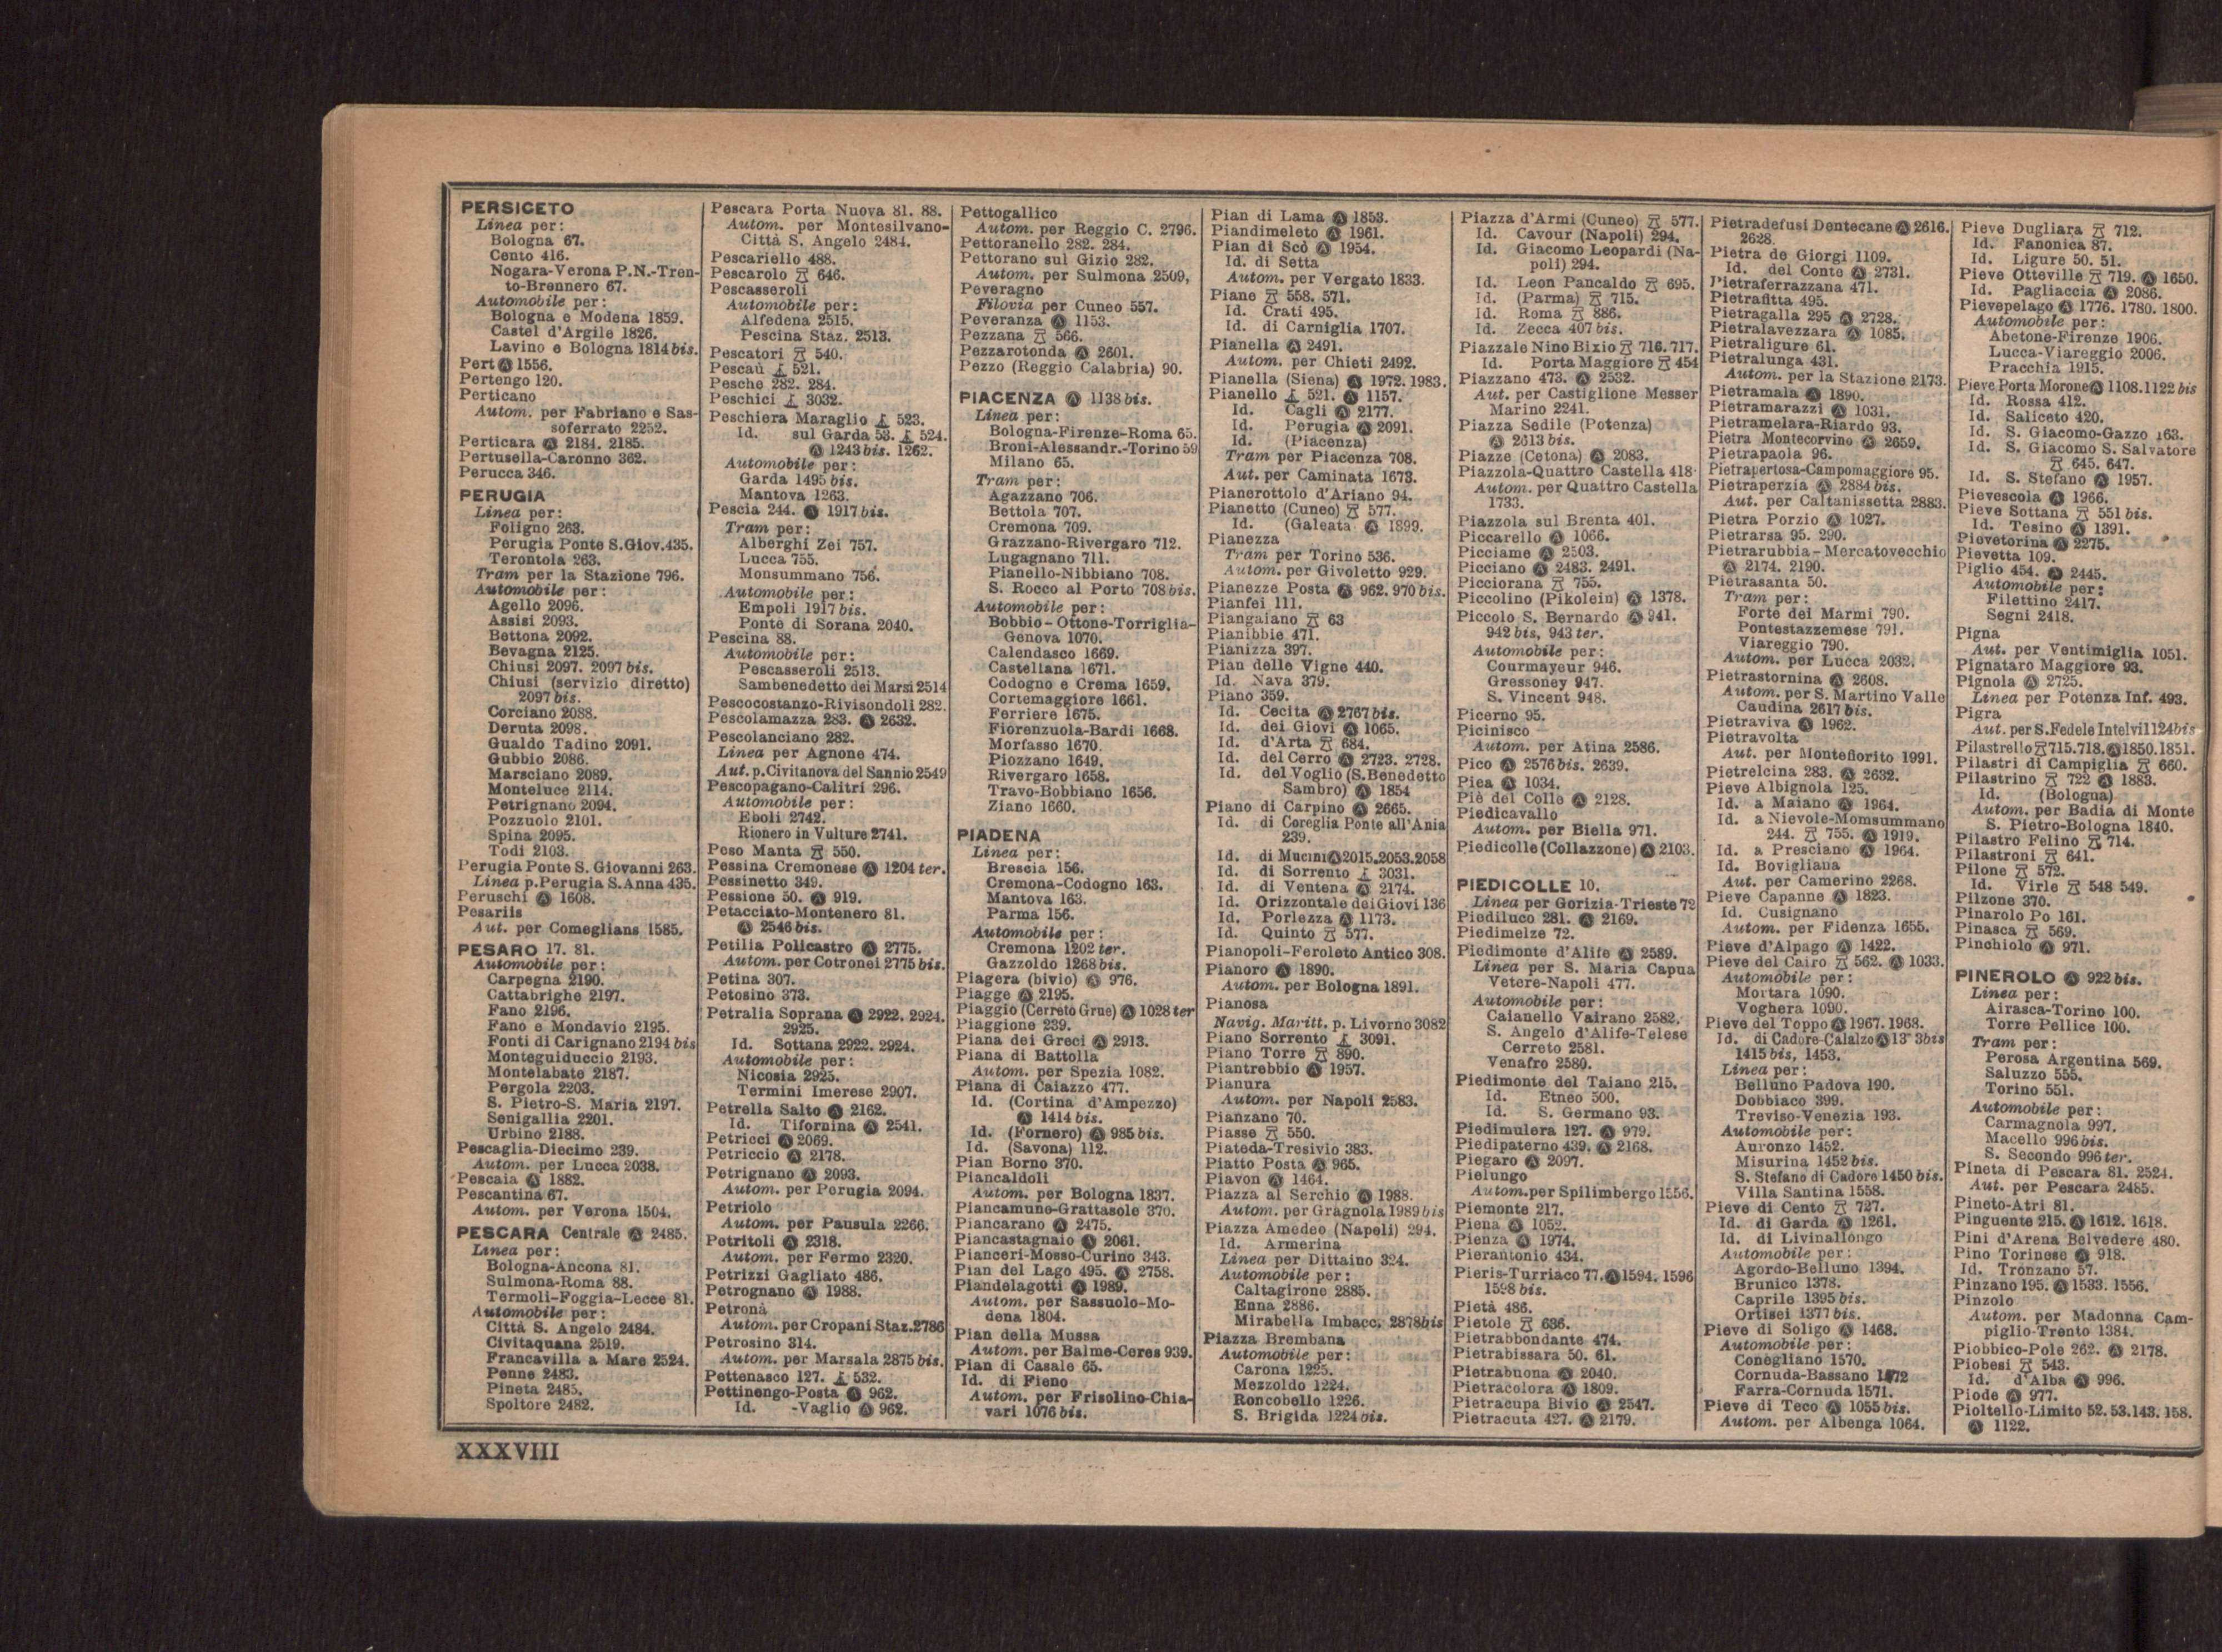 PERSICETO
Linea per:
Bologna 67.
Cento 416.
Nogara-Verona P.N.-Tren-
to-Brennero 67.
Automobile per:
Bologna e Modena 1859.
Castel d'Argile 1826.
Lavino e Bologna 1814 bis.
Pert Ⓐ 1556.
Pertengo 120.
Perticano
Autom. per Fabriano e Sas-
soferrato 2252.
Perticara Ⓐ 2184. 2185.
Pertusella-Caronno 362.
Perucca 346.
PERUGIA
Linea per:
Foligno 263.
Perugia Ponte S.Giov.435.
Terontola 263.
Tram per la Stazione 796.
Automobile per:
Agello 2096.
Assisi 2093.
Bettona 2092.
Bevagna 2125.
Chiusi 2097. 2097 bis.
Chiusi (servizio diretto)
2097 bis.
Corciano 2088.
Deruta 2098.
Gualdo Tadino 2091.
Gubbio 2086.
Marsciano 2089.
Monteluce 2114.
Petrignano 2094.
Pozzuolo 2101.
Spina 2095.
Todi 2103.
Perugia Ponte S. Giovanni 263.
Linea p.Perugia S.Anna 435.
Peruschi Ⓐ 1608.
Pesariis
Aut. per Comeglians 1585.
PESARO 17. 81.
Automobile per:
Carpegna 2190.
Cattabrighe 2197.
Fano 2196.
Fano e Mondavio 2195.
Fonti di Carignano 2194 bis
Monteguiduccio 2193.
Montelabate 2187.
Pergola 2203.
S. Pietro-S. Maria 2197.
Senigallia 2201.
Urbino 2188.
Pescaglia-Diecimo 239.
Autom. per Lucca 2038.
Pescaia Ⓐ 1882.
Pescantina 67.
Autom. per Verona 1504.
PESCARA Centrale Ⓐ 2485.
Linea per:
Bologna-Ancona 81.
Sulmona-Roma 88.
Termoli-Foggia-Lecce 81.
Automobile per:
Città S. Angelo 2484.
Civitaquana 2519.
Francavilla a Mare 2524.
Penne 2483.
Pineta 2485.
Spoltore 2482.
Pescara Porta Nuova 81. 88.
Autom. per Montesilvano-
Città S. Angelo 2484.
Pescariello 488.
Pescarolo 646.
Pescasseroli
Automobile per:
Alfedena 2515.
Pescina Staz. 2513.
Pescatori 540.
Pescaù 521.
Pesche 282. 284.
Peschici 3032.
Peschiera Maraglio 523.
Id. sul Garda 53. 524.
Ⓐ 1243 bis. 1262.
Automobile per:
Garda 1495 bis.
Mantova 1263.
Pescia 244. Ⓐ 1917 bis.
Tram per:
Alberghi Zei 757.
Lucca 755.
Monsummano 756.
Automobile per:
Empoli 1917 bis.
Ponte di Sorana 2040.
Pescina 88.
Automobile per:
Pescasseroli 2513.
Sambenedetto dei Marsi 2514
Pescocostanzo-Rivisondoli 282.
Pescolamazza 283. Ⓐ 2632.
Pescolanciano 282.
Linea per Agnone 474.
Aut. p.Civitanova del Sannio 2549
Pescopagano-Calitri 296.
Automobile per:
Eboli 2742.
Rionero in Vulture 2741.
Peso Manta 550.
Pessina Cremonese Ⓐ 1204 ter.
Pessinetto 349.
Pessione 50. Ⓐ 919.
Petacciato-Montenero 81.
Ⓐ 2546 bis.
Petilia Policastro Ⓐ 2775.
Autom. per Cotronei 2775 bis.
Petina 307.
Petosino 373.
Petralia Soprana Ⓐ 2922. 2924.
2925.
Id. Sottana 2922. 2924.
Automobile per:
Nicosia 2925.
Termini Imerese 2907.
Petrella Salto Ⓐ 2162.
Id. Tifornina Ⓐ 2541.
Petricci Ⓐ 2069.
Petriccio Ⓐ 2178.
Petrignano Ⓐ 2093.
Autom. per Perugia 2094.
Petriolo
Autom. per Pausula 2266.
Petritoli Ⓐ 2318.
Autom. per Fermo 2320.
Petrizzi Gagliato 486.
Petrognano Ⓐ 1988.
Petronà
Autom. per Cropani Staz.2786
Petrosino 314.
Autom. per Marsala 2875 bis.
Pettenasco 127. 532.
Pettinengo-Posta Ⓐ 962.
Id. -Vaglio Ⓐ 962.
Pettogallico
Autom. per Reggio C. 2796.
Pettoranello 282. 284.
Pettorano sul Gizio 282.
Autom. per Sulmona 2509,
Peveragno
Filovia per Cuneo 557.
Peveranza Ⓐ 1153.
Pezzana 566.
Pezzarotonda Ⓐ 2601.
Pezzo (Reggio Calabria) 90.
PIACENZA Ⓐ 1138 bis.
Linea per:
Bologna-Firenze-Roma 65.
Broni-Alessandr.-Torino 59
Milano 65.
Tram per:
Agazzano 706.
Bettola 707.
Cremona 709.
Grazzano-Rivergaro 712.
Lugagnano 711.
Pianello-Nibbiano 708.
S. Rocco al Porto 708 bis.
Automobile per:
Bobbio-Ottone-Torriglia-
Genova 1070.
Calendasco 1669.
Castellana 1671.
Codogno e Crema 1659.
Cortemaggiore 1661.
Ferriere 1675.
Fiorenzuola-Bardi 1668.
Morfasso 1670.
Piozzano 1649.
Rivergaro 1658.
Travo-Bobbiano 1656.
Ziano 1660.
PIADENA
Linea per:
Brescia 156.
Cremona-Codogno 163.
Mantova 163.
Parma 156.
Automobile per:
Cremona 1202 ter.
Gazzoldo 1268 bis.
Piagera (bivio) Ⓐ 976.
Piagge Ⓐ 2195.
Piaggio (Cerreto Grue) Ⓐ 1028 ter
Piaggione 239.
Piana dei Greci Ⓐ 2913.
Piana di Battolla
Autom. per Spezia 1082.
Piana di Caiazzo 477.
Id. (Cortina d'Ampezzo)
Ⓐ 1414 bis.
Id. (Fornero) Ⓐ 985 bis.
Id. (Savona) 112.
Pian Borno 370.
Piancaldoli
Autom. per Bologna 1837.
Piancamuno-Grattasole 370.
Piancarano Ⓐ 2475.
Piancastagnaio Ⓐ 2061.
Pianceri-Mosso-Curino 343.
Pian del Lago 495. Ⓐ 2758.
Piandelagotti Ⓐ 1989.
Autom. per Sassuolo-Mo-
dena 1804.
Pian della Mussa
Autom. per Balme-Ceres 939.
Pian di Casale 65.
Id. di Fieno
Autom. per Frisolino-Chia-
vari 1076 bis.
Pian di Lama Ⓐ 1853.
Piandimeleto Ⓐ 1961.
Pian di Scò Ⓐ 1954.
Id. di Setta
Autom. per Vergato 1833.
Piane 558. 571.
Id. Crati 495.
Id. di Carniglia 1707.
Pianella Ⓐ 2491.
Autom. per Chieti 2492.
Pianella (Siena) Ⓐ 1972. 1983.
Pianello 521. Ⓐ 1157.
Id. Cagli Ⓐ 2177.
Id. Perugia Ⓐ 2091.
Id. (Piacenza)
Tram per Piacenza 708.
Aut. per Caminata 1673.
Pianerottolo d'Ariano 94.
Pianetto (Cuneo) 577.
Id. (Galeata Ⓐ 1899.
Pianezza
Tram per Torino 536.
Autom. per Givoletto 929.
Pianezze Posta Ⓐ 962. 970 bis.
Pianfei 111.
Piangaiano 63
Pianibbie 471.
Pianizza 397.
Pian delle Vigne 440.
Id. Nava 379.
Piano 359.
Id. Cecita Ⓐ 2767 bis.
Id. dei Giovi Ⓐ 1065.
Id. d'Arta 684.
Id. del Cerro Ⓐ 2723. 2728.
Id. del Voglio (S.Benedetto
Sambro) Ⓐ 1854
Piano di Carpino Ⓐ 2665.
Id. di Coreglia Ponte all'Ania
239.
Id. di Mucini Ⓐ 2015.2053.2058
Id. di Sorrento 3031.
Id. di Ventena Ⓐ 2174.
Id. Orizzontale dei Giovi 136
Id. Porlezza Ⓐ 1173.
Id. Quinto 577.
Pianopoli-Feroleto Antico 308.
Pianoro Ⓐ 1890.
Autom. per Bologna 1891.
Pianosa
Navig. Maritt. p. Livorno 3082
Piano Sorrento 3091.
Piano Torre 890.
Piantrebbio Ⓐ 1957.
Pianura
Autom. per Napoli 2583.
Pianzano 70.
Piasse 550.
Piateda-Tresivio 383.
Piatto Posta Ⓐ 965.
Piavon Ⓐ 1464.
Piazza al Serchio Ⓐ 1988.
Autom. per Gragnola 1989 bis
Piazza Amedeo (Napoli) 294.
Id. Armerina
Linea per Dittaino 324.
Automobile per:
Caltagirone 2885.
Enna 2886.
Mirabella Imbacc. 2878bis
Piazza Brembana
Automobile per:
Carona 1225.
Mezzoldo 1224.
Roncobello 1226.
S. Brigida 1224 bis.
Piazza d'Armi (Cuneo) 577.
Id. Cavour (Napoli) 294.
Id. Giacomo Leopardi (Na-
poli) 294.
Id. Leon Pancaldo 695.
Id. (Parma) 715.
Id. Roma 886.
Id. Zecca 407 bis.
Piazzale Nino Bixio 716. 717.
Id. Porta Maggiore 454
Piazzano 473. Ⓐ 2532.
Aut. per Castiglione Messer
Marino 2241.
Piazza Sedile (Potenza)
Ⓐ 2613 bis.
Piazze (Cetona) Ⓐ 2083.
Piazzola-Quattro Castella 418
Autom. per Quattro Castella
1733.
Piazzola sul Brenta 401.
Piccarello Ⓐ 1066.
Picciame Ⓐ 2503.
Picciano Ⓐ 2483. 2491.
Picciorana 755.
Piccolino (Pikolein) Ⓐ 1378.
Piccolo S. Bernardo Ⓐ 941.
942 bis, 943 ter.
Automobile per:
Courmayeur 946.
Gressoney 947.
S. Vincent 948.
Picerno 95.
Picinisco
Autom. per Atina 2586.
Pico Ⓐ 2576 bis. 2639.
Piea Ⓐ 1034.
Piè del Colle Ⓐ 2128.
Piedicavallo
Autom. per Biella 971.
Piedicolle (Collazzone) Ⓐ 2103.
PIEDICOLLE 10.
Linea per Gorizia-Trieste 72
Piediluco 281. Ⓐ 2169.
Piedimelze 72.
Piedimonte d'Alife Ⓐ 2589.
Linea per S. Maria Capua
Vetere-Napoli 477.
Automobile per:
Caianello Vairano 2582.
S. Angelo d'Alife-Telese
Cerreto 2581.
Venafro 2580.
Piedimonte del Taiano 215.
Id. Etneo 500.
Id. S. Germano 93.
Piedimulera 127. Ⓐ 979.
Piedipaterno 439. Ⓐ 2168.
Piegaro Ⓐ 2097.
Pielungo
Autom.per Spilimbergo 1556.
Piemonte 217.
Piena Ⓐ 1052.
Pienza Ⓐ 1974.
Pierantonio 434.
Pieris-Turriaco 77. Ⓐ 1594. 1596
1598 bis.
Pietà 486.
Pietole 686.
Pietrabbondante 474.
Pietrabissara 50. 61.
Pietrabuona Ⓐ 2040.
Pietracolora Ⓐ 1809.
Pietracupa Bivio Ⓐ 2547.
Pietracuta 427. Ⓐ 2179.
Pietradefusi Dentecane Ⓐ 2616.
2628.
Pietra de Giorgi 1109.
Id. del Conte Ⓐ 2731.
Pietraferrazzana 471.
Pietrafitta 495.
Pietragalla 295 Ⓐ 2728.
Pietralavezzara Ⓐ 1085.
Pietraligure 61.
Pietralunga 431.
Autom. per la Stazione 2173.
Pietramala Ⓐ 1890.
Pietramarazzi Ⓐ 1031.
Pietramelara-Riardo 93.
Pietra Montecorvino Ⓐ 2659.
Pietrapaola 96.
Pietrapertosa-Campomaggiore 95.
Pietraperzia Ⓐ 2884 bis.
Aut. per Caltanissetta 2883.
Pietra Porzio Ⓐ 1027.
Pietrarsa 95. 290.
Pietrarubbia-Mercatovecchio
Ⓐ 2174. 2190.
Pietrasanta 50.
Tram per:
Forte dei Marmi 790.
Pontestazzemese 791.
Viareggio 790.
Autom. per Lucca 2032.
Pietrastornina Ⓐ 2608.
Autom. per S. Martino Valle
Caudina 2617 bis.
Pietraviva Ⓐ 1962.
Pietravolta
Aut. per Montefiorito 1991.
Pietrelcina 283. Ⓐ 2632.
Pieve Albignola 125.
Id. a Maiano Ⓐ 1964.
Id. a Nievole-Momsummano
244. 755. Ⓐ 1919.
Id. a Presciano Ⓐ 1964.
Id. Bovigliana
Aut. per Camerino 2268.
Pieve Capanne Ⓐ 1823.
Id. Cusignano
Autom. per Fidenza 1655.
Pieve d'Alpago Ⓐ 1422.
Pieve del Cairo 562. Ⓐ 1033.
Automobile per:
Mortara 1090.
Voghera 1090.
Pieve del Toppo Ⓐ 1967. 1968.
Id. di Cadore-Calalzo Ⓐ
1415 bis, 1453.
Linea per:
Belluno Padova 190.
Dobbiaco 399.
Treviso-Venezia 193.
Automobile per:
Auronzo 1452.
Misurina 1452 bis.
S. Stefano di Cadore 1450 bis.
Villa Santina 1558.
Pieve di Cento 727.
Id. di Garda Ⓐ 1261.
Id. di Livinallongo
Automobile per:
Agordo-Belluno 1394.
Brunico 1378.
Caprile 1395 bis.
Ortisei 1377 bis.
Pieve di Soligo Ⓐ 1468.
Automobile per:
Conegliano 1570.
Cornuda-Bassano
Farra-Cornuda 1571.
Pieve di Teco Ⓐ 1055 bis.
Autom. per Albenga 1064.
Pieve Dugliara 712.
Id. Fanonica 87.
Id. Ligure 50. 51.
Pieve Otteville 719. Ⓐ 1650.
Id. Pagliaccia Ⓐ 2086.
Pievepelago Ⓐ 1776. 1780. 1800.
Automobile per:
Abetone-Firenze 1906.
Lucca-Viareggio 2006.
Pracchia 1915.
Pieve Porta Morone Ⓐ 1108.1122 bis
Id. Rossa 412.
Id. Saliceto 420.
Id. S. Giacomo-Gazzo 163.
Id. S. Giacomo S. Salvatore
645. 647.
Id. S. Stefano Ⓐ 1957.
Pievescola Ⓐ 1966.
Pieve Sottana 551 bis.
Id. Tesino Ⓐ 1391.
Pievetorina Ⓐ 2275.
Pievetta 109.
Piglio 454. Ⓐ 2445.
Automobile per:
Filettino 2417.
Segni 2418.
Pigna
Aut. per Ventimiglia 1051.
Pignataro Maggiore 93.
Pignola Ⓐ 2725.
Linea per Potenza Inf. 493.
Pigra
Aut. per S.Fedele Intelvi1124bis
Pilastrello 715.718. Ⓐ 1850.1851.
Pilastri di Campiglia 660.
Pilastrino 722 Ⓐ 1883.
Id. (Bologna)
Autom. per Badia di Monte
S. Pietro-Bologna 1840.
Pilastro Felino 714.
Pilastroni 641.
Pilone 572.
Id. Virle 548 549.
Pilzone 370.
Pinarolo Po 161.
Pinasca 569.
Pinchiolo Ⓐ 971.
PINEROLO Ⓐ 922 bis.
Linea per:
Airasca-Torino 100.
Torre Pellice 100.
Tram per:
Perosa Argentina 569.
Saluzzo 555.
Torino 551.
Automobile per:
Carmagnola 997.
Macello 996 bis.
S. Secondo 996 ter.
Pineta di Pescara 81. 2524.
Aut. per Pescara 2485.
Pineto-Atri 81.
Pinguente 215. Ⓐ 1612. 1618.
Pini d'Arena Belvedere 480.
Pino Torinese Ⓐ 918.
Id. Tronzano 57.
Pinzano 195. Ⓐ 1533. 1556.
Pinzolo
Autom. per Madonna Cam-
piglio-Trento 1384.
Piobbico-Pole 262. Ⓐ 2178.
Piobesi 543.
Id. d'Alba Ⓐ 996.
Piode Ⓐ 977.
Pioltello-Limito 52. 53.143. 158.
Ⓐ 1122.
XXXVIII